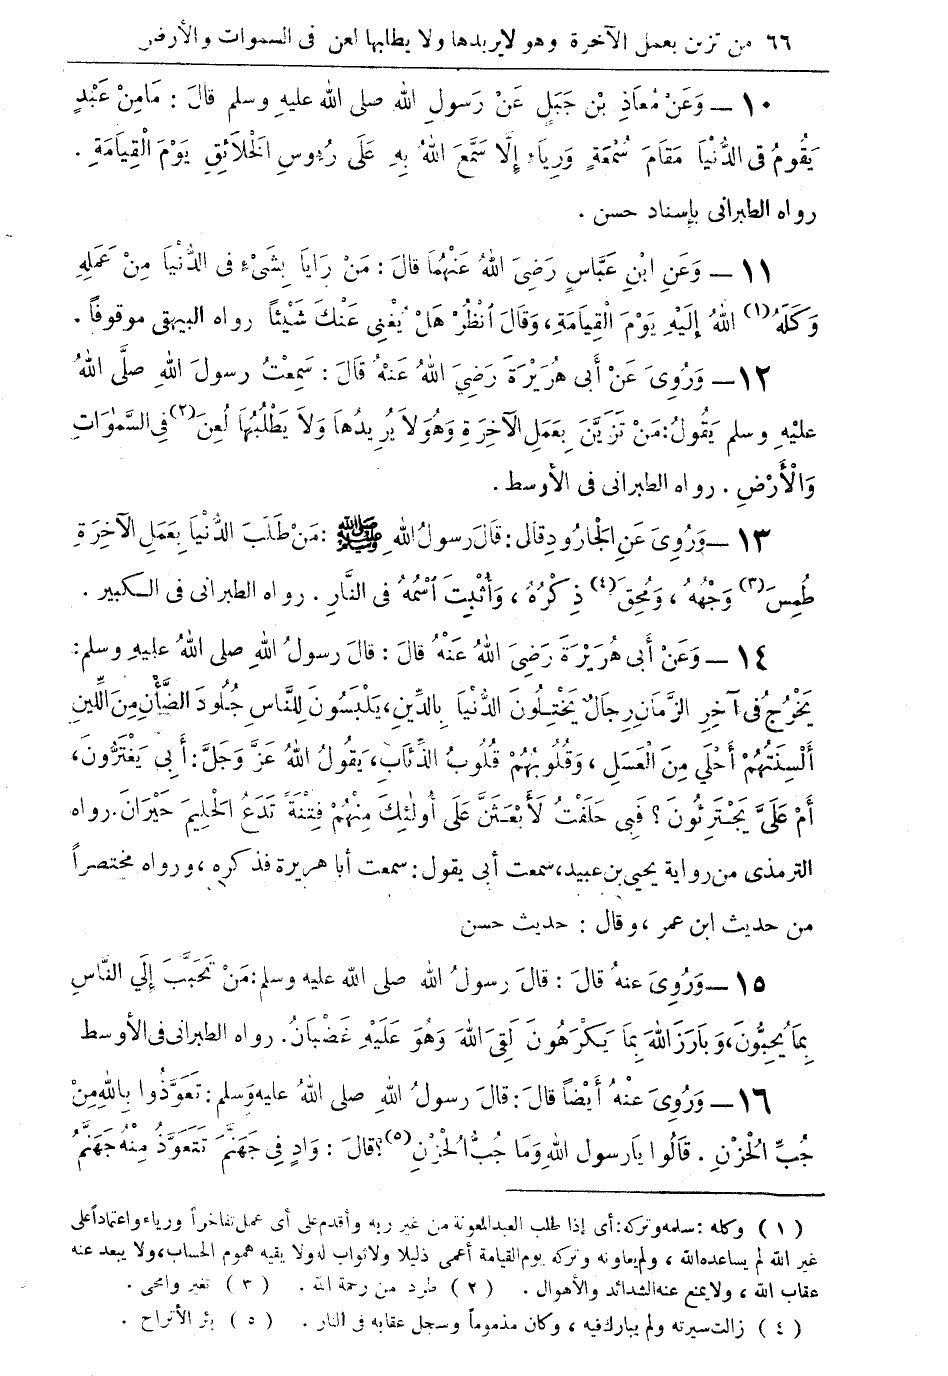 ٦٦ من تزين بعمل الآخرة وهو لايريدها ولا يطلبها لعن فى السموات والأرض
١٠ — وَعَنْ مُعَاذِ بْنِ جَبَلٍ عَنْ رَسولِ اللهِ صلى اللهُ عليهِ وسلم قالَ : مَامِنْ عَبْدٍ
يَقُومُ فى الدُّنْيَا مَقَامَ سُمْعَةٍ وَرِيَاءٍ إِلَّا سَمَّعَ اللهُ بِهِ عَلَى رُءُوسِ الْخَلَائِقِ يَوْمَ الْقِيَامَةِ .
رواه الطبرانى بإسناد حسن .
١١ — وَعَنِ ابْنِ عَبَّاسٍ رَضِيَ اللهُ عَنْهُمَا قالَ : مَنْ رَايَا بِشَىْءٍ فى الدُّنْيَا مِنْ عَمَلِهِ
وَكَلَهُ (١) اللهُ إِلَيْهِ يَوْمَ الْقِيَامَةِ، وَقَالَ انْظُرْ هَلْ يُغْنِى عَنْكَ شَيْئاً رواه البيهقى موقوفاً .
١٢ — وَرُوِىَ عَنْ أَبى هُرَيْرَةَ رَضِيَ اللهُ عَنْهُ قَالَ : سَمِعْتُ رسولَ اللهِ صَلَّى اللهُ
عليْهِ وسلم يَقُولُ: مَنْ تَزَيَّنَ بِعَمَلِ الآخِرَةِ وَهُوَ لاَ يُرِيدُهَا وَلاَ يَطْلُبُهَا لُعِنَ (٢) فِى السَّمٰوَاتِ
وَالْأَرْضِ . رواه الطبرانى فى الأوسط .
١٣ — وَرُوِىَ عَنِ الْجَارُودِ قالَ : قَالَ رسولُ اللهِ ﷺ : مَنْ طَلَبَ الدُّنْيَا بِعَمَلِ الآخِرَةِ
طُمِسَ (٣) وَجْهُهُ ، وَمُحِقَ (٤) ذِكْرُهُ ، وَأُثْبِتَ اسْمُهُ فى النَّارِ . رواه الطبرانى فى الكبير .
١٤ — وَعَنْ أَبى هُرَيْرَةَ رَضِيَ اللهُ عَنْهُ قالَ : قالَ رسولُ اللهِ صلى اللهُ عليهِ وسلم :
يَخْرُجُ فى آخِرِ الزَّمَانِ رِجَالٌ يَخْتِلُونَ الدُّنْيَا بِالدِّينِ، يَلْبَسُونَ لِلنَّاسِ جُلُودَ الضَّأْنِ مِنَ اللِّينِ
أَلْسِنَتُهُمْ أَحْلَى مِنَ الْعَسَلِ ، وَقُلُوبُهُمْ قُلُوبُ الذِّئَابِ، يَقُولُ اللهُ عَزَّ وَجَلَّ : أَبِى يَغْتَرُّونَ،
أَمْ عَلَىَّ يَجْتَرِئُونَ ؟ فَبِى حَلَفْتُ لَأَبْعَثَنَّ عَلَى أُولٰئِكَ مِنْهُمْ فِتْنَةً تَدَعُ الْحَلِيمَ حَيْرَانَ. رواه
الترمذى من رواية يحيى بن عبيد، سمعت أبى يقول : سمعت أبا هريرة فذكره ، ورواه مختصراً
من حديث ابن عمر ، وقال : حديث حسن
١٥ — وَرُوِىَ عنهُ قالَ : قالَ رسولُ اللهِ صلى الله عليه وسلم : مَنْ تَحَبَّبَ إِلَى النَّاسِ
بِمَا يُحِبُّونَ، وَبَارَزَ اللهَ بِمَا يَكْرَهُونَ لَقِىَ اللهَ وَهُوَ عَلَيْهِ غَضْبَانُ. رواه الطبرانى فى الأوسط
١٦ — وَرُوِىَ عنْهُ أَيْضاً قالَ : قالَ رسولُ اللهِ صلى اللهُ عليه وَسلم : تَعَوَّذُوا بِاللهِ مِنْ
جُبِّ الْحُزْنِ . قَالُوا يَارسول اللهِ وَمَا جُبُّ الْحُزْنِ (٥) ؟ قالَ : وَادٍ فِى جَهَنَّمَ تَتَعَوَّذُ مِنْهُ جَهَنَّمُ
( ١ ) وكله : سلمه وتركه : أى إذا طلب العبد المعونة من غير ربه وأقدم على أى عمل تفاخراً ورياء واعتماداً على
غير الله لم يساعده الله ، ولم يعاونه وتركه يوم القيامة أعمى ذليلا ولا ثواب له ولا يقيه هموم الحساب، ولا يبعد عنه
عقاب الله ، ولا يمنع عنه الشدائد والأهوال . ( ٢ ) طرد من رحمة الله . ( ٣ ) تغير وامحى .
( ٤ ) زالت سيرته ولم يبارك فيه ، وكان مذموماً وسجل عقابه فى النار . ( ٥ ) بئر الأتراح .